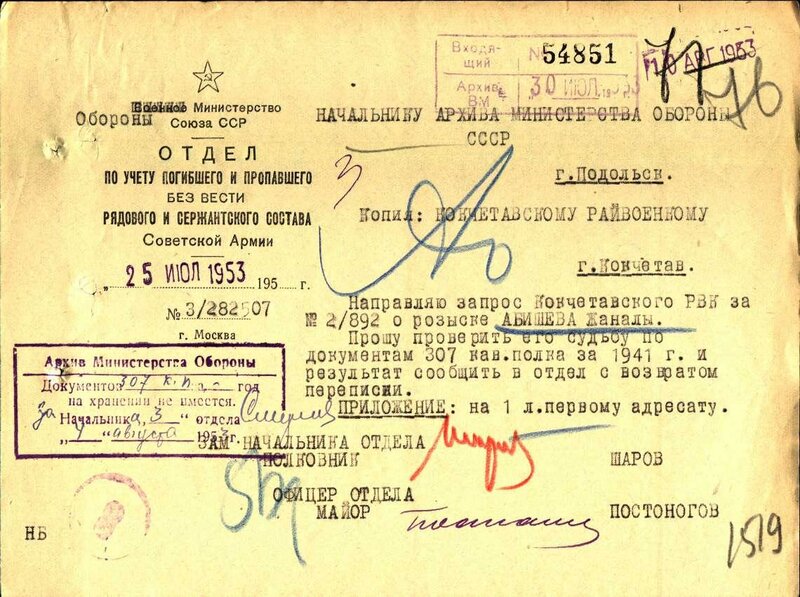 Входя-
щий № 54851
Архив ВМ 30 ИЮЛ 1953
10 АВГ 1953
77
76
Обороны
Военное Министерство
Союза ССР
ОТДЕЛ
ПО УЧЕТУ ПОГИБШЕГО И ПРОПАВШЕГО
БЕЗ ВЕСТИ
РЯДОВОГО И СЕРЖАНТСКОГО СОСТАВА
Советской Армии
„ 25 ИЮЛ 1953 195 г.
№ 3/282507
г. Москва
НАЧАЛЬНИКУ АРХИВА МИНИСТЕРСТВА ОБОРОНЫ
СССР
3
г.Подольск.
Копия: КОКЧЕТАВСКОМУ РАЙВОЕНКОМУ
г.Кокчетав.
Направляю запрос Кокчетавского РВК за
№ 2/892 о розыске АБИШЕВА ЖАНАЛЫ.
Прошу проверить его судьбу по
документам 307 кав.полка за 1941 г. и
результат сообщить в отдел с возвратом
переписки.
ПРИЛОЖЕНИЕ: на 1 л.первому адресату.
Архив Министерства Обороны
Документов 307 к.п. за год
на хранении не имеется.
за Начальника „3“ отдела
„1“ августа 1953 г.
ЗАМ НАЧАЛЬНИКА ОТДЕЛА
ПОЛКОВНИК ШАРОВ
ОФИЦЕР ОТДЕЛА
МАЙОР ПОСТОНОГОВ
НБ
1519